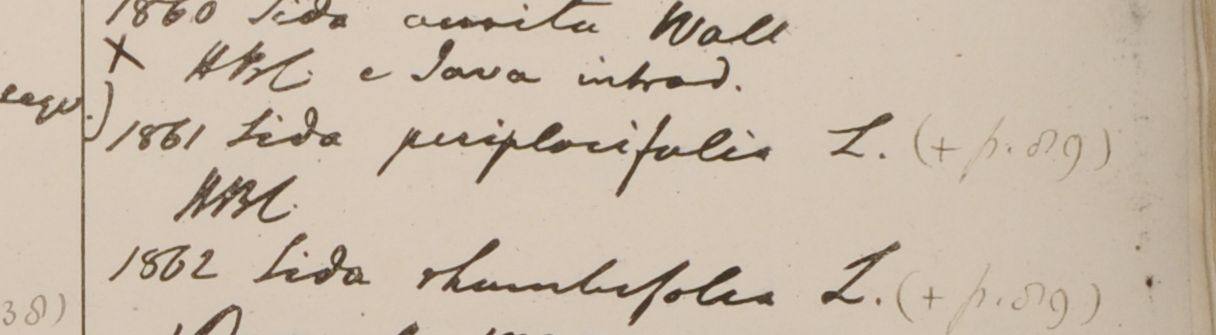 1860 Sida aurita Wall
+ HBC. e Java introd.
1861 Sida periplocifolia L. (+ p. 89)
HBC.
1862 Sida rhombifolia L. (+ p. 89)
38)